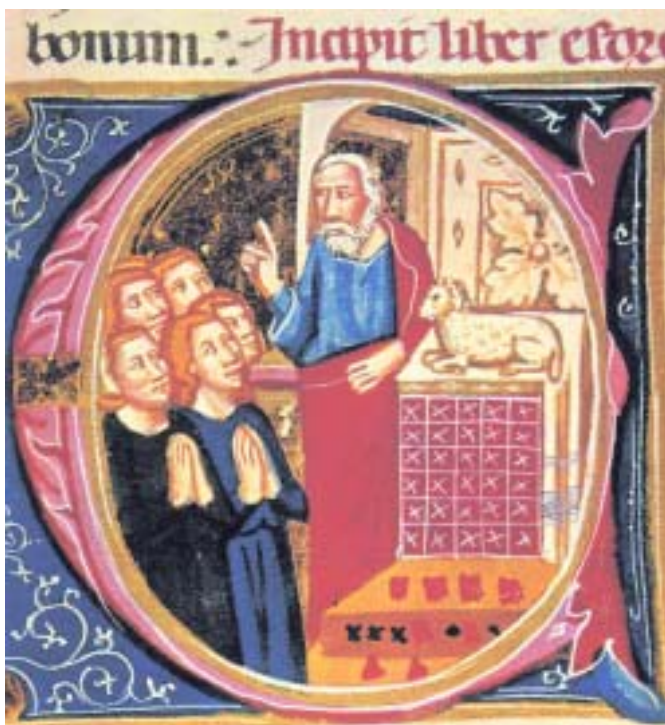 bonum.·. Incipit liber esdre